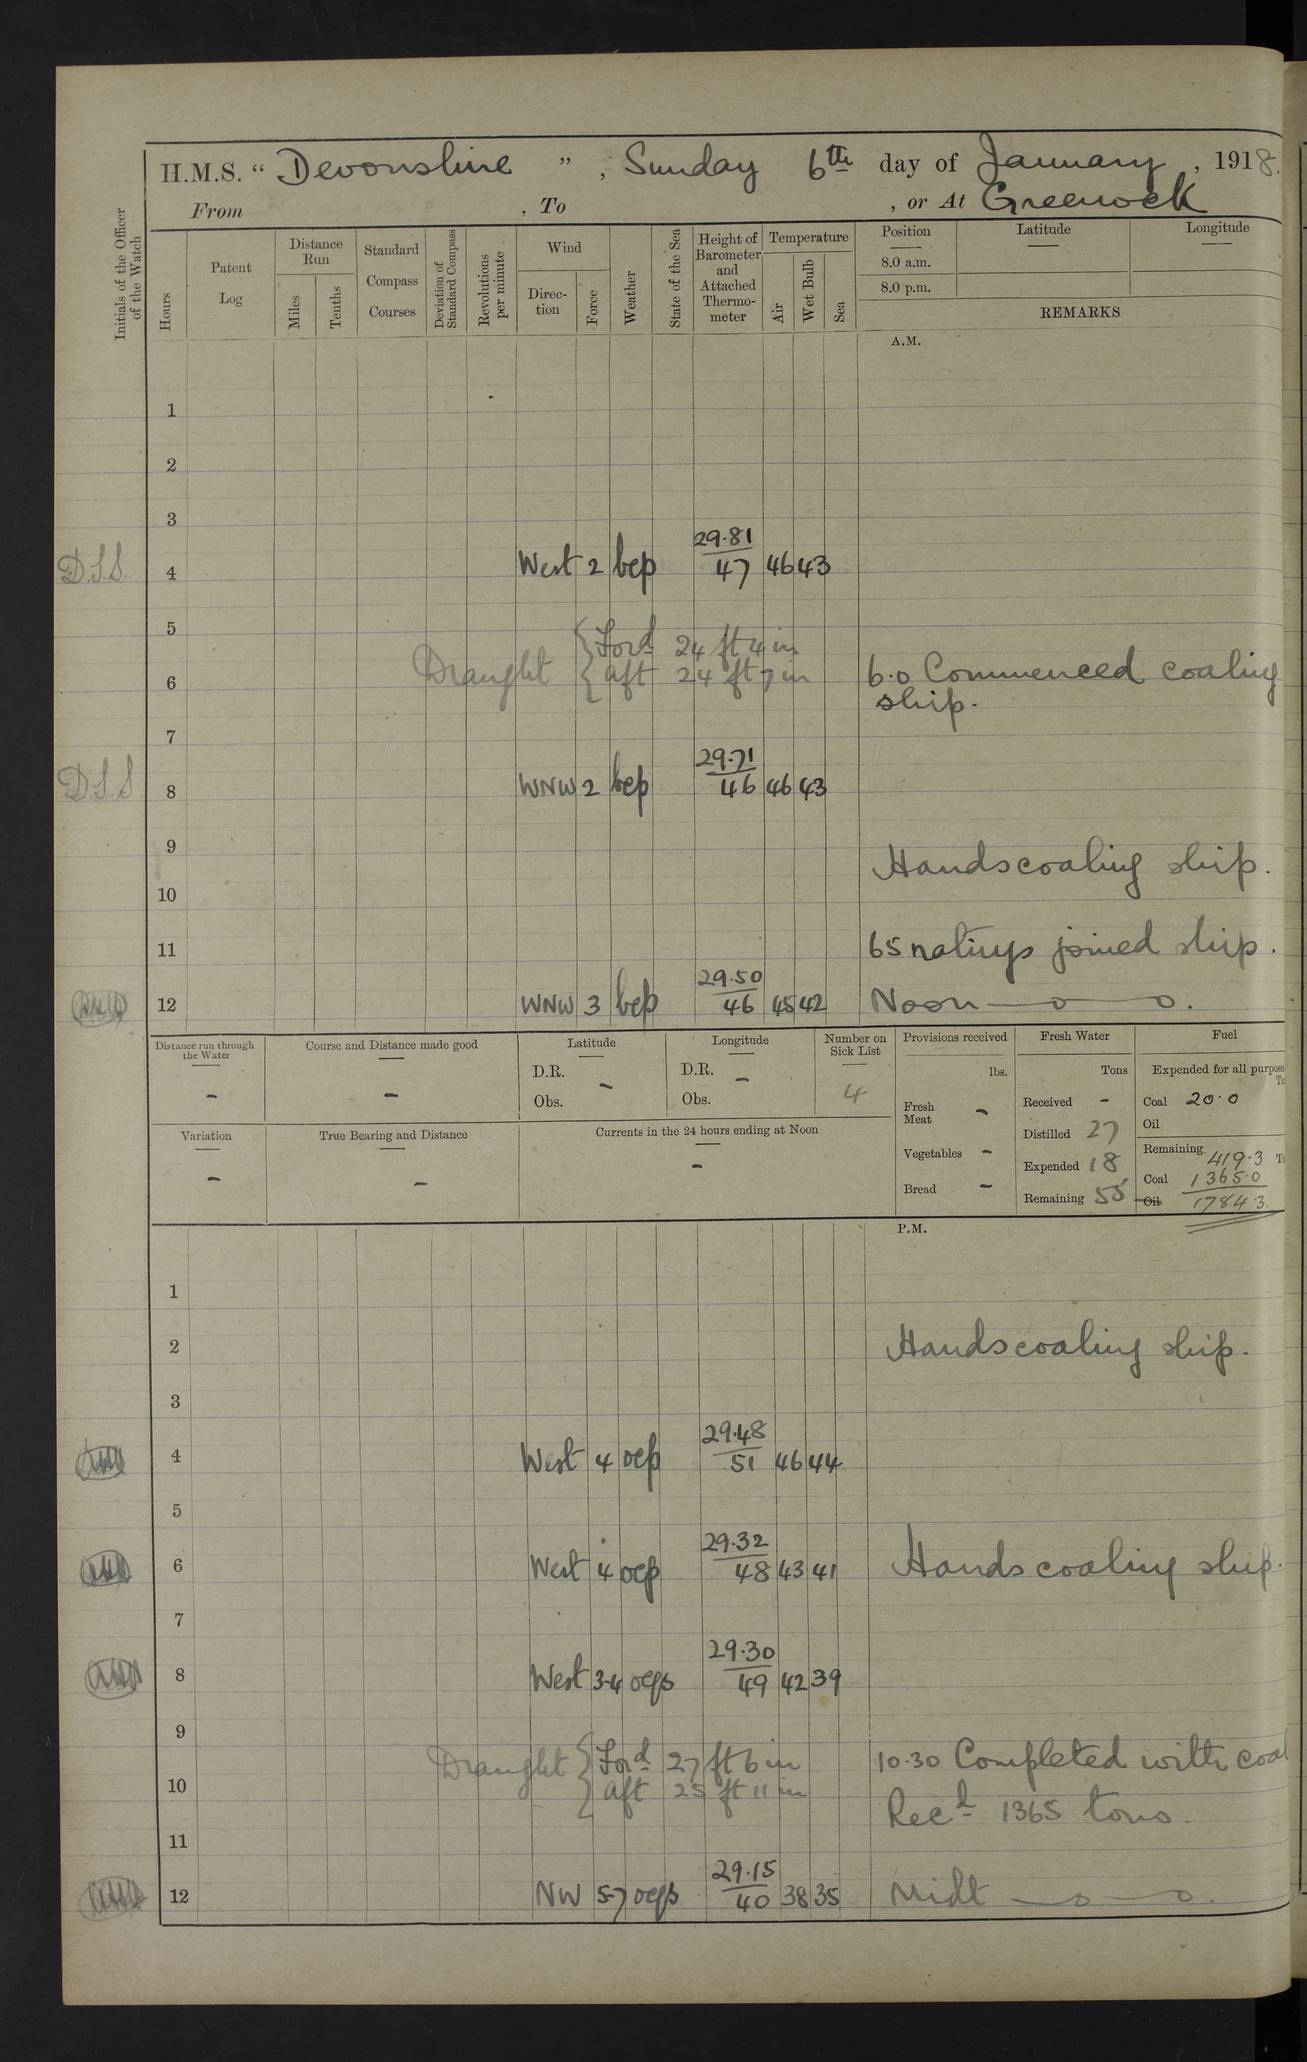 H.M.S. “ Devonshire ” , Sunday 6th day of January , 1918.
From , To , or At Greenock
Initials of the Officer of the Watch
Hours
Patent Log
Distance Run
Miles
Tenths
Standard Compass Courses
Deviation of Standard Compass
Revolutions per minute
Wind
Direc-tion
Force
Weather
State of the Sea
Height of Barometer and Attached Thermo-meter
Temperature
Air
Wet Bulb
Sea
Position
8.0 a.m.
8.0 p.m.
Latitude
Longitude
REMARKS
A.M.
1
2
3
29.81
D.S.S. 4 West 2 bcp 47 46 43
5
Draught { Ford 24 ft 4 in
{ aft 24 ft 7 in
6 6.0 Commenced coaling
ship.
7
29.71
D.S.S 8 WNW 2 bcp 46 46 43
9 Hands coaling ship.
10
11 65 ratings joined ship.
29.50
12 WNW 3 bcp 46 45 42 Noon —o—o.
Distance run through the Water
-
Course and Distance made good
-
Latitude
D.R. -
Obs.
Longitude
D.R. -
Obs.
Number on Sick List
4
Variation
-
True Bearing and Distance
-
Currents in the 24 hours ending at Noon
-
Provisions received
lbs.
Fresh Meat -
Vegetables -
Bread -
Fresh Water
Tons
Received -
Distilled 27
Expended 18
Remaining 55
Fuel
Expended for all purpose
To
Coal 20.0
Oil
Remaining 419.3 To
Coal 1365.0
Oil 1784.3
P.M.
1
2 Hands coaling ship.
3
29.48
4 West 4 ocp 51 46 44
5
29.32
6 West 4 ocp 48 43 41 Hands coaling ship.
7
29.30
8 West 3-4 ocqs 49 42 39
9
Draught { Ford 27 ft 6 in 10.30 Completed with coal
10 { aft 25 ft 11 in Recd 1365 tons.
11
29.15
12 NW 5-7 ocqs 40 38 35 Midt —o—o.